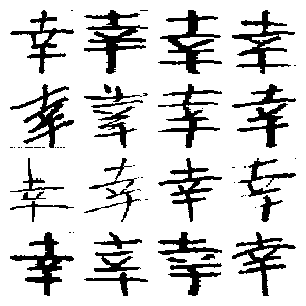 幸幸幸幸
幸幸幸幸
幸幸幸幸
幸幸幸幸